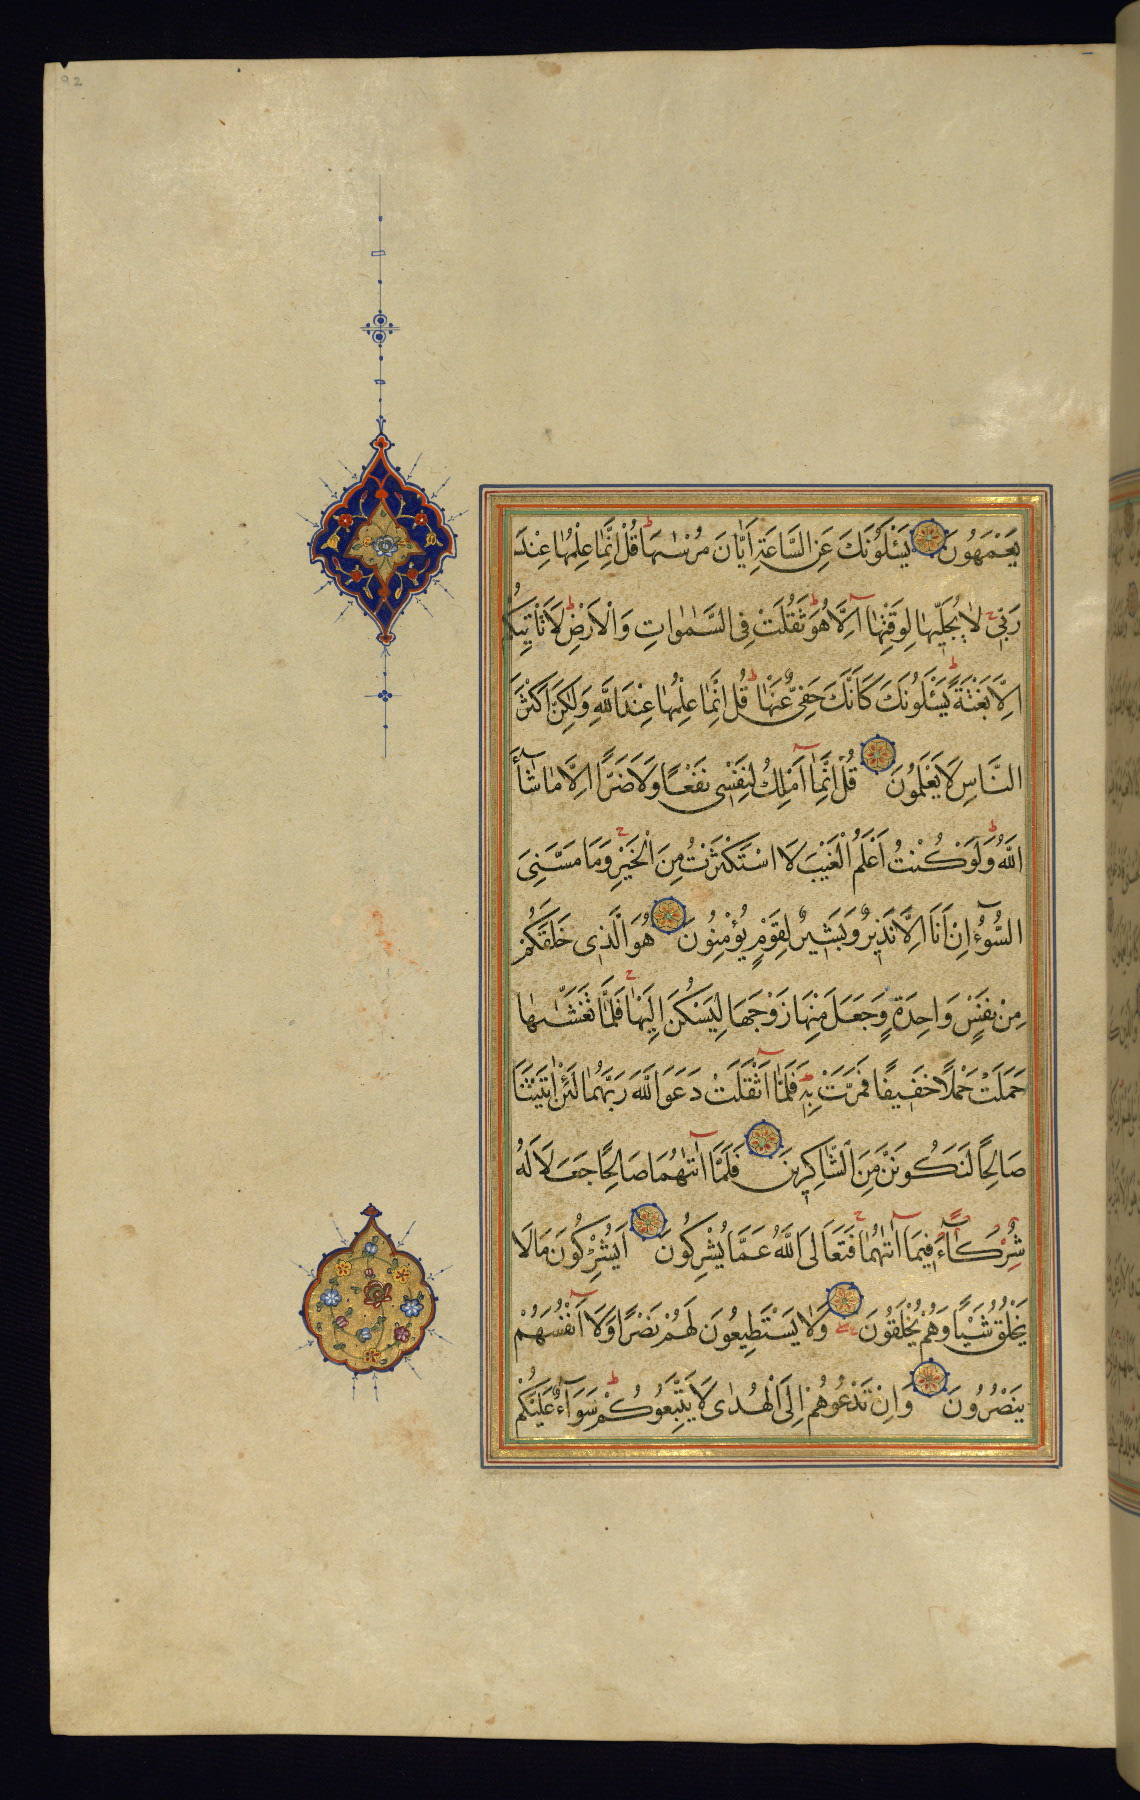 92
يَعْمَهُونَ يَسْئَلُونَكَ عَنِ السَّاعَةِ اَيَّانَ مُرْسٰيهَا قُلْ اِنَّمَا عِلْمُهَا عِنْدَ
رَبّ۪ي لَا يُجَلّ۪يهَا لِوَقْتِهَٓا اِلَّا هُوَ ثَقُلَتْ فِي السَّمٰوَاتِ وَالْاَرْضِ لَا تَأْت۪يكُمْ
اِلَّا بَغْتَةً يَسْئَلُونَكَ كَاَنَّكَ حَفِيٌّ عَنْهَا قُلْ اِنَّمَا عِلْمُهَا عِنْدَ اللّٰهِ وَلٰكِنَّ اَكْثَرَ
النَّاسِ لَا يَعْلَمُونَ قُلْ اِنَّمَٓا اَمْلِكُ لِنَفْس۪ي نَفْعًا وَلَا ضَرًّا اِلَّا مَا شَٓاءَ
اللّٰهُ وَلَوْ كُنْتُ اَعْلَمُ الْغَيْبَ لَا اسْتَكْثَرْتُ مِنَ الْخَيْرِ وَمَا مَسَّنِيَ
السُّٓوءُ اِنْ اَنَا اِلَّا نَذ۪يرٌ وَبَش۪يرٌ لِقَوْمٍ يُؤْمِنُونَ هُوَ الَّذ۪ي خَلَقَكُمْ
مِنْ نَفْسٍ وَاحِدَةٍ وَجَعَلَ مِنْهَا زَوْجَهَا لِيَسْكُنَ اِلَيْهَا فَلَمَّا تَغَشّٰيهَا
حَمَلَتْ حَمْلًا خَف۪يفًا فَمَرَّتْ بِهِ فَلَمَّٓا اَثْقَلَتْ دَعَوَا اللّٰهَ رَبَّهُمَا لَئِنْ اٰتَيْتَنَا
صَالِحًا لَنَكُونَنَّ مِنَ الشَّاكِر۪ينَ فَلَمَّٓا اٰتٰهُمَا صَالِحًا جَعَلَا لَهُ
شُرَكَٓاءَ ف۪يمَٓا اٰتٰهُمَا فَتَعَالَى اللّٰهُ عَمَّا يُشْرِكُونَ اَيُشْرِكُونَ مَا لَا
يَخْلُقُ شَيْئًا وَهُمْ يُخْلَقُونَ وَلَا يَسْتَط۪يعُونَ لَهُمْ نَصْرًا وَلَٓا اَنْفُسَهُمْ
يَنْصُرُونَ وَاِنْ تَدْعُوهُمْ اِلَى الْهُدٰى لَا يَتَّبِعُوكُمْ سَوَٓاءٌ عَلَيْكُمْ